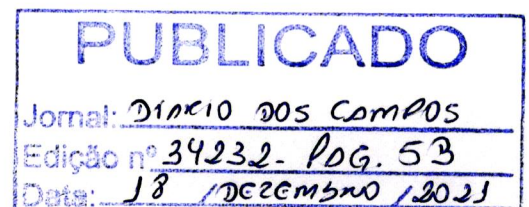 PUBLICADO
Jornal: DIÁRIO DOS CAMPOS
Edição nº 34232- PAG. 5B
Data: 18 / DEZEMBRO / 2021